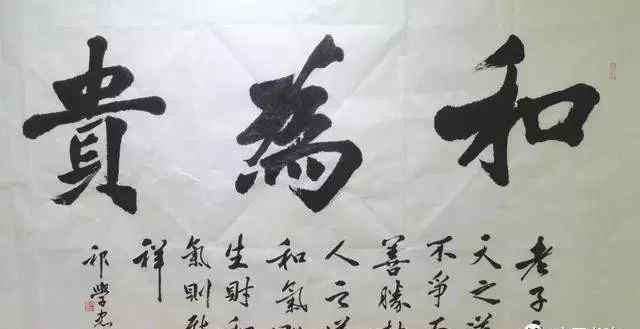 和為貴
老子
天之道
不爭而
善勝
人之道
和氣則
生財和
氣則
祥
祁學忠